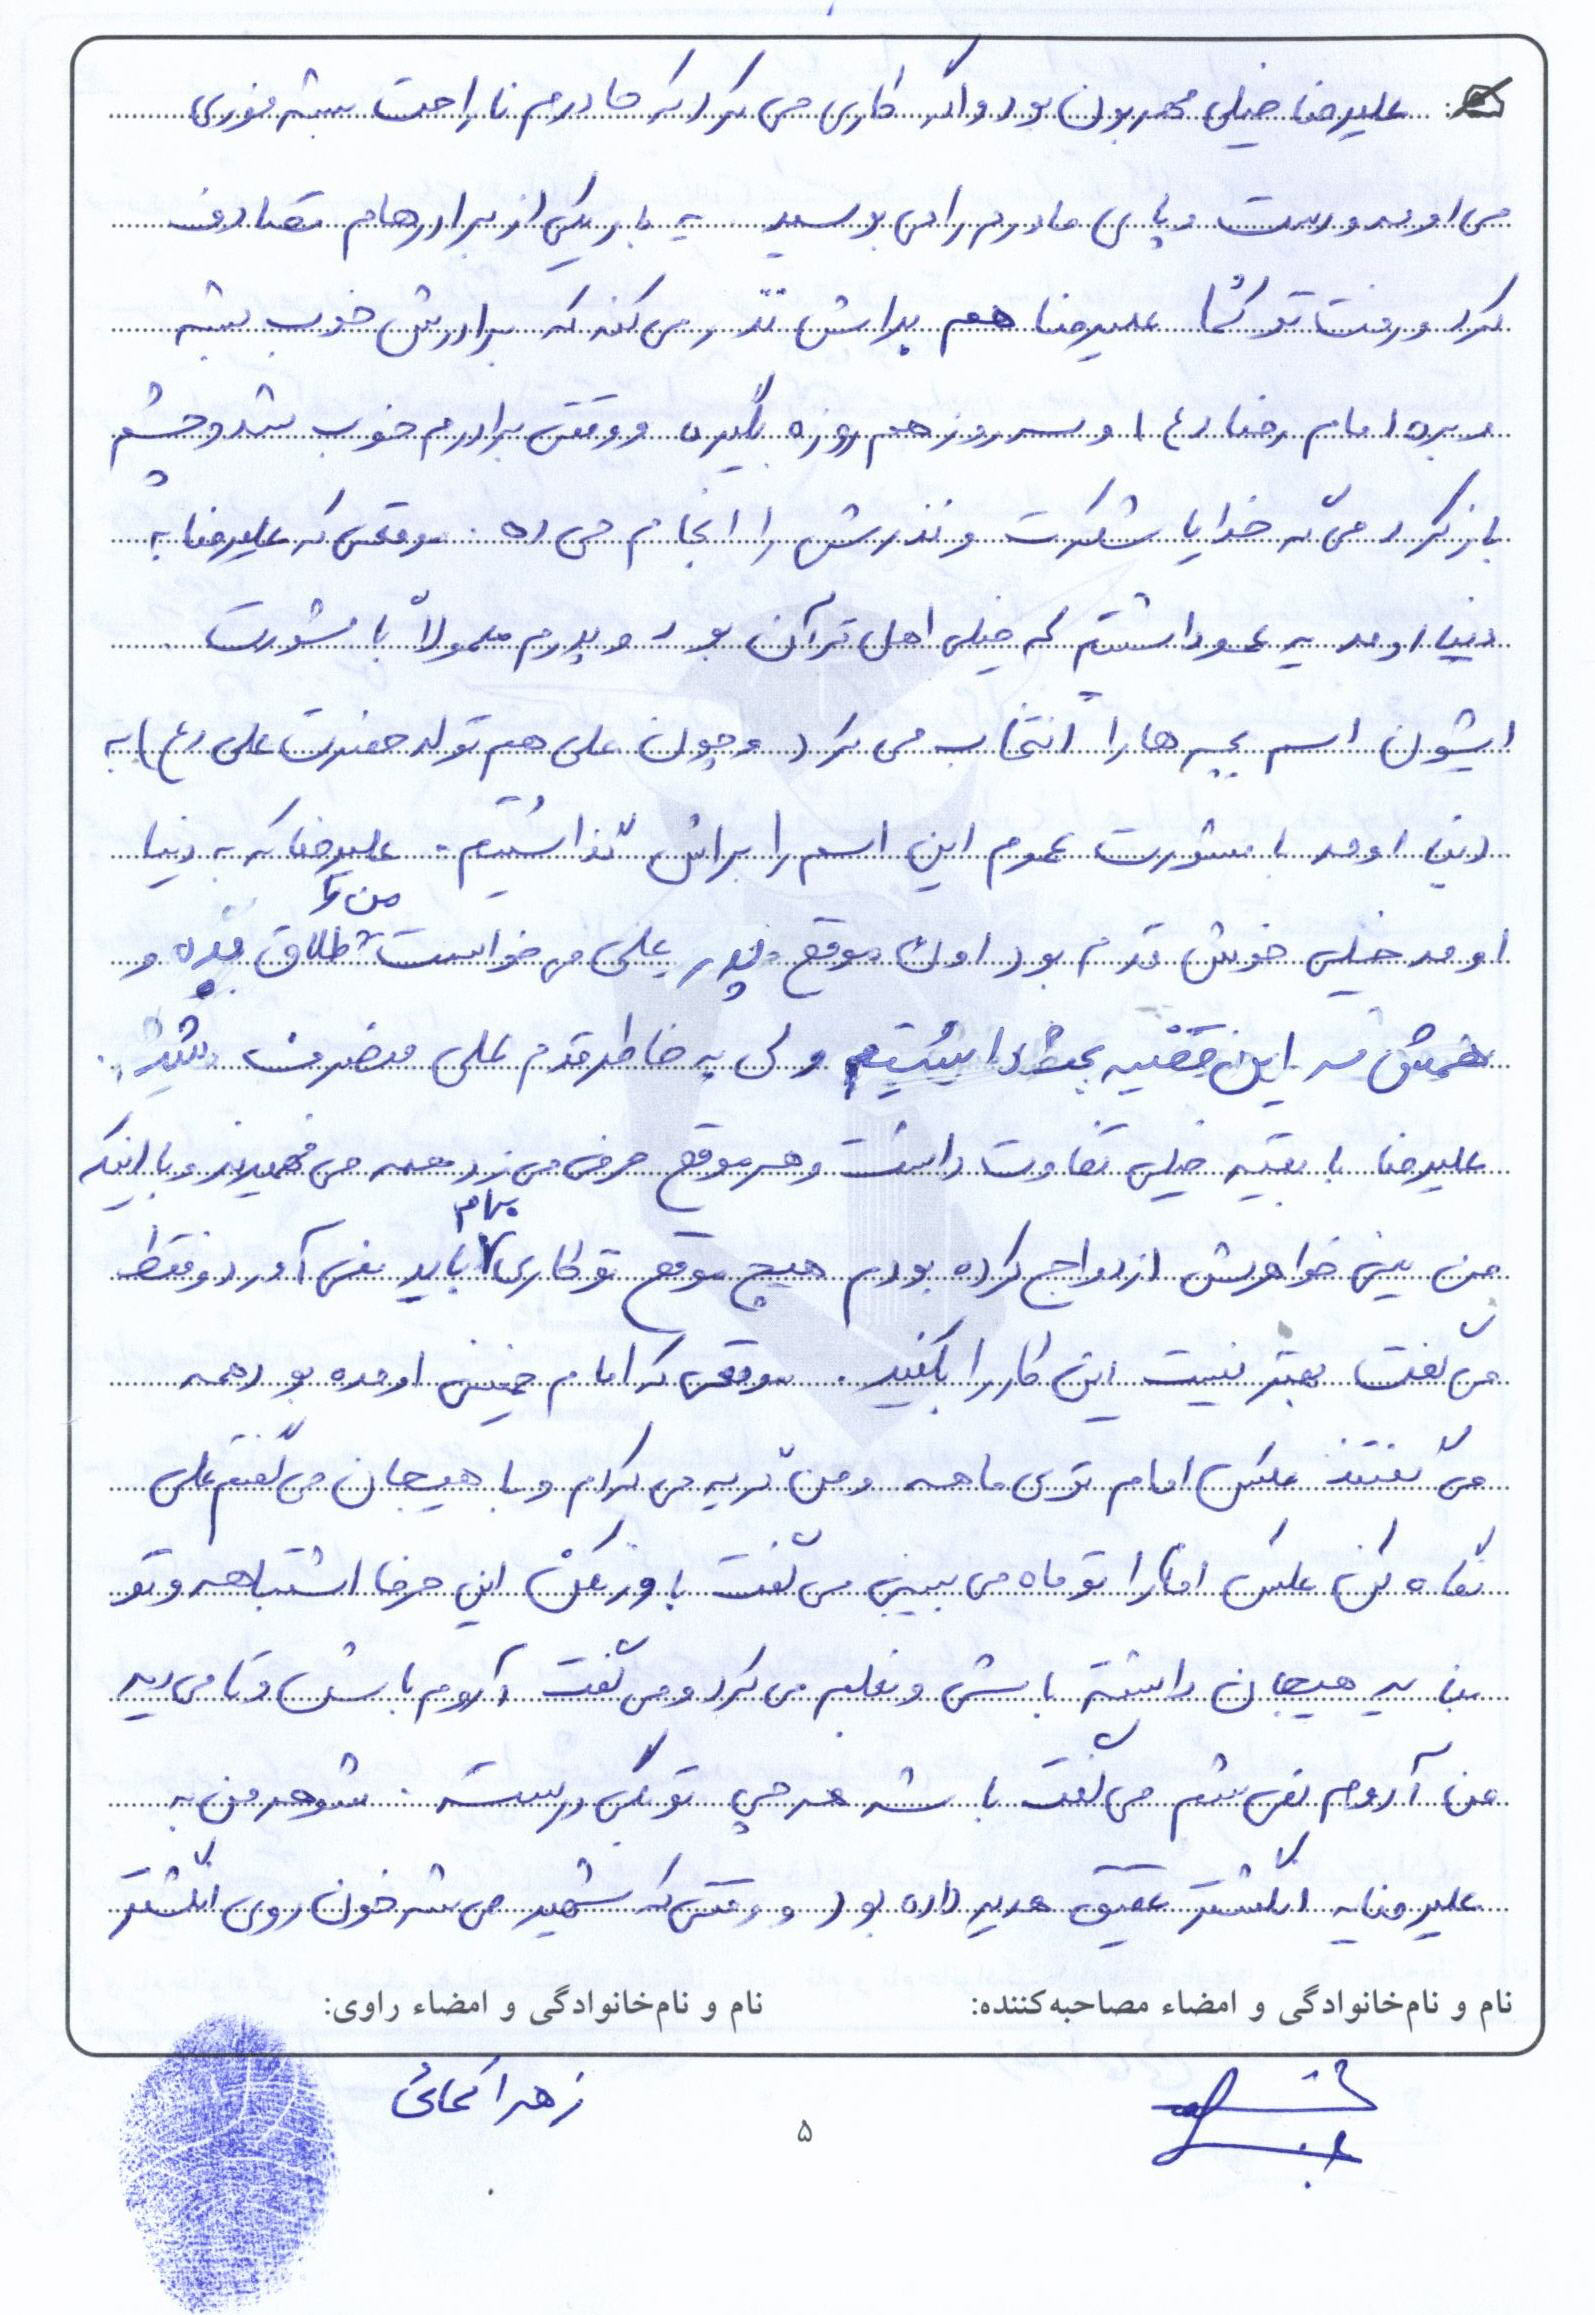 علیرضا خیلی مهربون بود و اگه کاری می کرد که مادرم ناراحت بشه فوری
می اومد و دست و پای مادرم را می بوسید یه بار یکی از برادرهام تصادف
کرد و رفت تو کُما علیرضا هم براش نذر می کنه که برادرش خوب بشه
و بره امام رضا (ع) و سه روز هم روزه بگیره و وقتی برادرم خوب شد و چشم
باز کرد می گه خدایا شکرت و نذرش را انجام می ده. موقعی که علیرضا به
دنیا اومد یه عمو داشتیم که خیلی اهل قرآن بود و پدرم معمولاً با مشورت
ایشون اسم بچه ها را انتخاب می کرد و چون علی هم تولد حضرت علی (ع) به
دنیا اومد با مشورت عموم این اسم را براش گذاشتیم. علیرضا که به دنیا
اومد خیلی خوش قدم بود اون موقع پدر علی می خواست من را طلاق بده و
همش سر این قضیه بحث داشتیم ولی به خاطر قدم علی منصرف شد.
علیرضا با بقیه خیلی تفاوت داشت و هر موقع حرفی می زد همه می فهمیدند و با اینکه
من یعنی خواهرش ازدواج کرده بودم هیچ موقع تو کاری بهام باید نمی آورد و فقط
می گفت بهتر نیست این کار را بکنید. موقعی که امام خمینی اومده بود همه
می گفتند عکس امام توی ماهه و من گریه می کردم و با هیجان می گفتم علی
نگاه کن عکس امام را تو ماه می بینی می گفت باور نکن این حرفا اشتباهه و تو
نباید هیجان داشته باشی و بغلم می کرد و می گفت آروم باش و تا می دید
من آروم نمی شم می گفت باشه هر چی تو بگی درسته. شوهر من به
علیرضا یه انگشتر عقیق هدیه داده بود و وقتی که شهید می شه خون روی انگشتر
نام و نام‌خانوادگی و امضاء مصاحبه‌کننده: نام و نام‌خانوادگی و امضاء راوی:
زهرا
۵